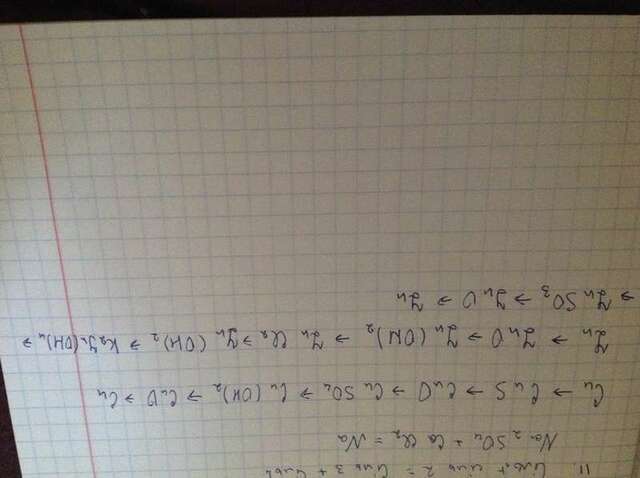 11. Соль1 + соль 2 = Соль 3 + Соль4
Na2SO4 + CaCl2 = Na
Cu → CuS → CuO → CuSO4 → Cu(OH)2 → CuO → Cu
Zn → ZnO → Zn(OH)2 → ZnCl2 → Zn(OH)2 → K2Zn(OH)4 →
→ ZnSO3 → ZnO → Zn